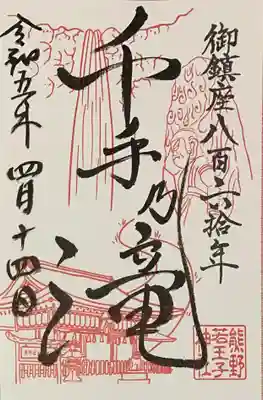 御鎮座八百六拾年
千手乃滝
令和五年 四月十四日
熊野
若王子